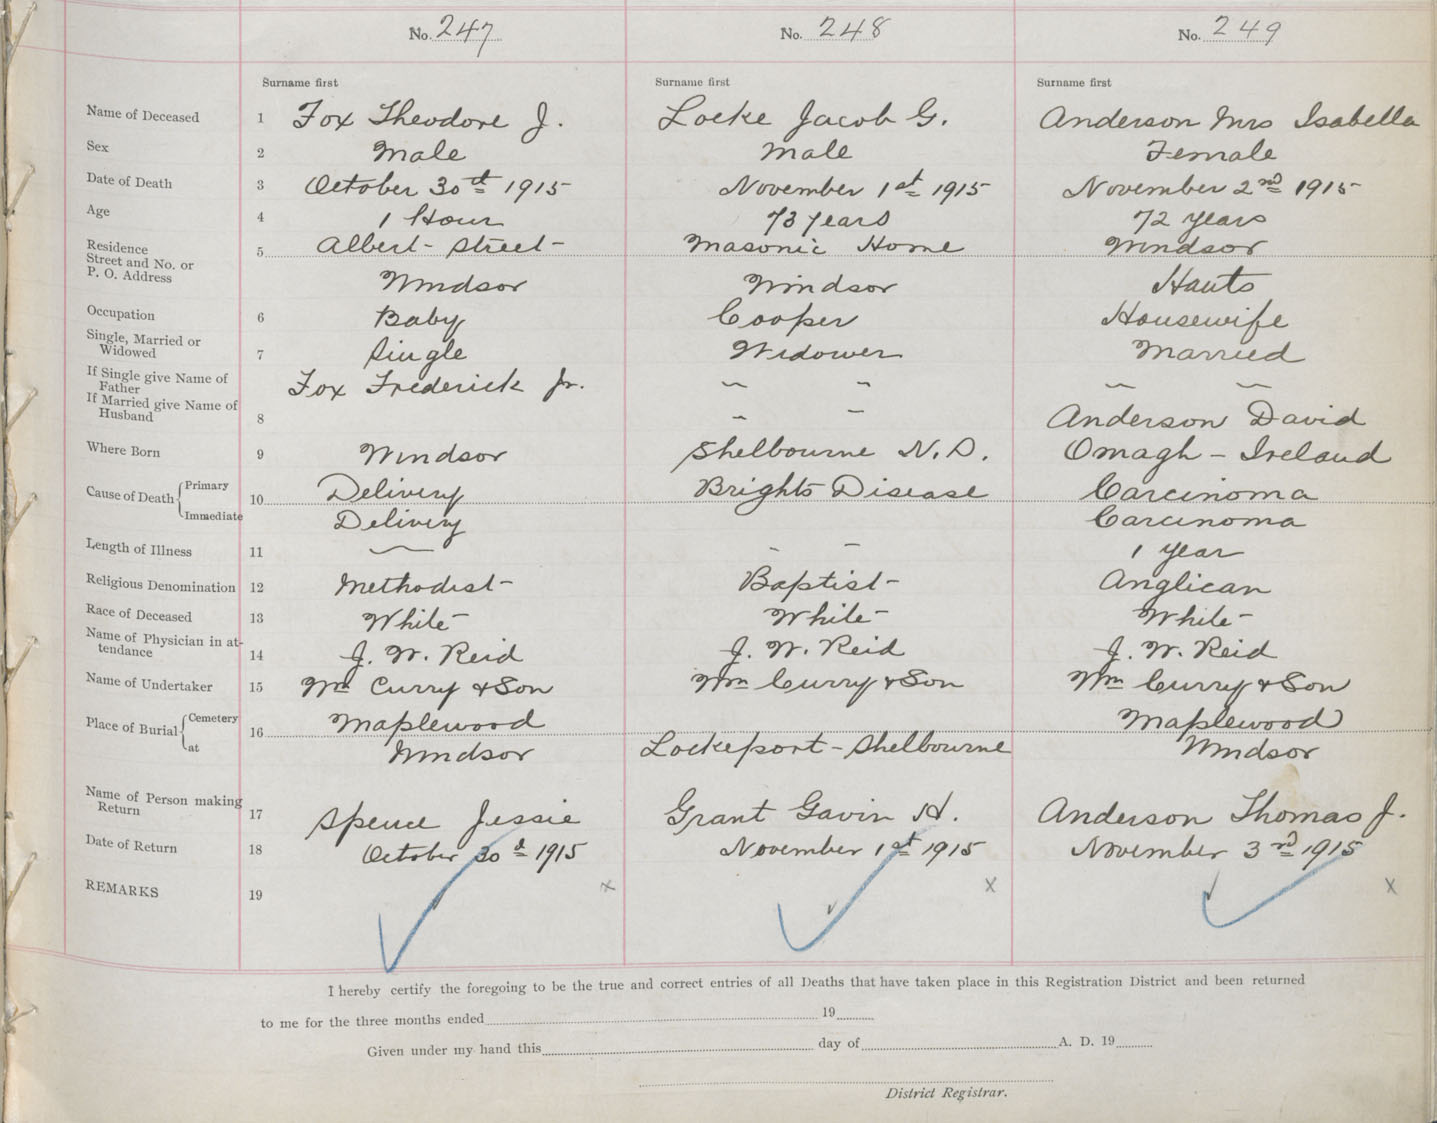 No. 247 No. 248 No. 249
Surname first Surname first Surname first
Name of Deceased 1 Fox Theodore J. Locke Jacob G. Anderson Mrs Isabella
Sex 2 Male Male Female
Date of Death 3 October 30th 1915 November 1st 1915 November 2nd 1915
Age 4 1 Hour 73 years 72 years
Residence 5 Albert Street Masonic Home Windsor
Street and No. or
P. O. Address Windsor Windsor Hants
Occupation 6 Baby Cooper Housewife
Single, Married or
Widowed 7 Single Widower Married
If Single give Name of
Father Fox Frederick Jr. " " " "
If Married give Name of
Husband 8 " " Anderson David
Where Born 9 Windsor Shelbourne N.S. Omagh - Ireland
Cause of Death Primary 10 Delivery Brights Disease Carcinoma
Immediate Delivery Carcinoma
Length of Illness 11 — - - 1 year
Religious Denomination 12 Methodist Baptist Anglican
Race of Deceased 13 White White White
Name of Physician in at-
tendance 14 J. W. Reid J. W. Reid J. W. Reid
Name of Undertaker 15 Wm Curry & Son Wm Curry & Son Wm Curry & Son
Place of Burial Cemetery 16 Maplewood Maplewood
at Windsor Lockeport - Shelbourne Windsor
Name of Person making
Return 17 Spence Jessie Grant Gavin H. Anderson Thomas J.
Date of Return 18 October 30th 1915 November 1st 1915 November 3rd 1915
REMARKS 19 x x x
I hereby certify the foregoing to be the true and correct entries of all Deaths that have taken place in this Registration District and been returned
to me for the three months ended 19
Given under my hand this day of A. D. 19
District Registrar.